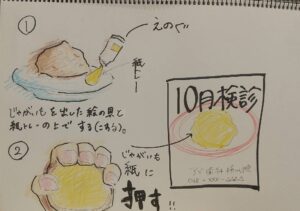 ①
えのぐ
紙トレー
じゃがいもを出した絵の具と
紙トレーの上で する(こする)。
②
じゃがいも
紙に
押す!!
10月検診